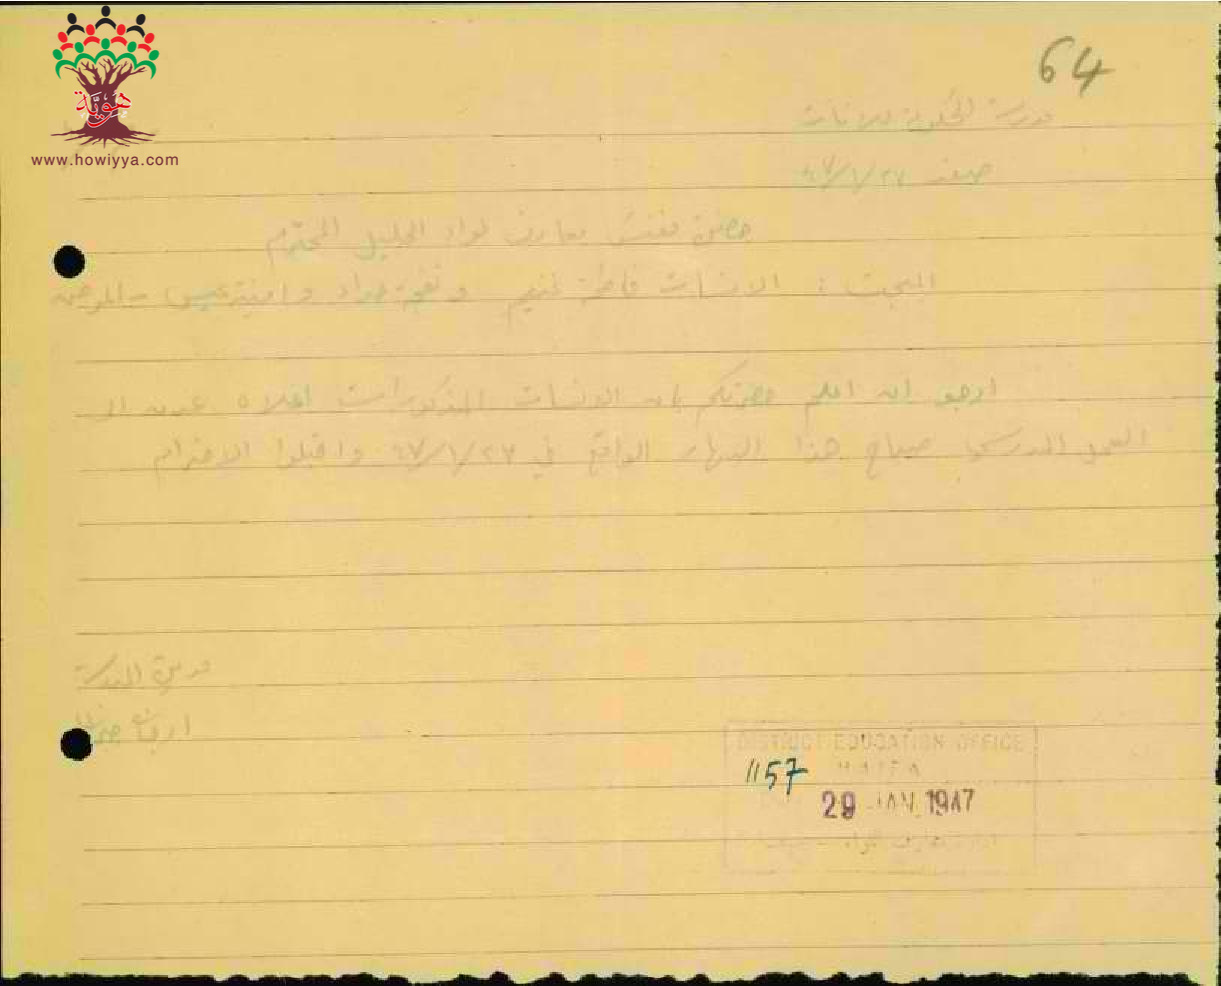 64
هوية
www.howiyya.com
مدرسة الحكومة للانات
صفد ٢٧/١/٤٧
حضرة مفتش معارف لواء الجليل المحترم
المبحث : الانسات فاطمة غنيم و مراد و امينة
ارجو ان اعلم حضرتكم بان الانسات المذكورات اعلاه عدن الى
العمل المدرسي صباح هذا النهار الواقع في ٢٧/١/٤٧ واقبلوا الاحترام
مديرة المدرسة
DISTRICT EDUCATION OFFICE
HAIFA
1157
29 JAN 1947